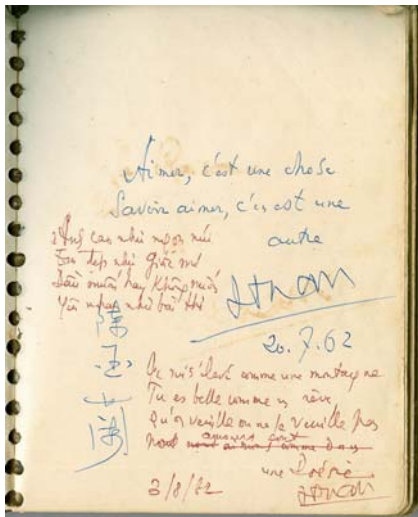 Aimer, c'est une chose
Savoir aimer, c'en est une
autre
Anh cao như ngọn núi
Em đẹp như Giấc mơ
Dầu muốn hay Không muốn
Yêu nhau như bài thơ
20.7.62
陳
Je suis élevé comme une montagne
Tu es belle comme un rêve
Qu'on veuille ou ne le veuille pas
amours sont
comme dans
une Poésie
3/8/62